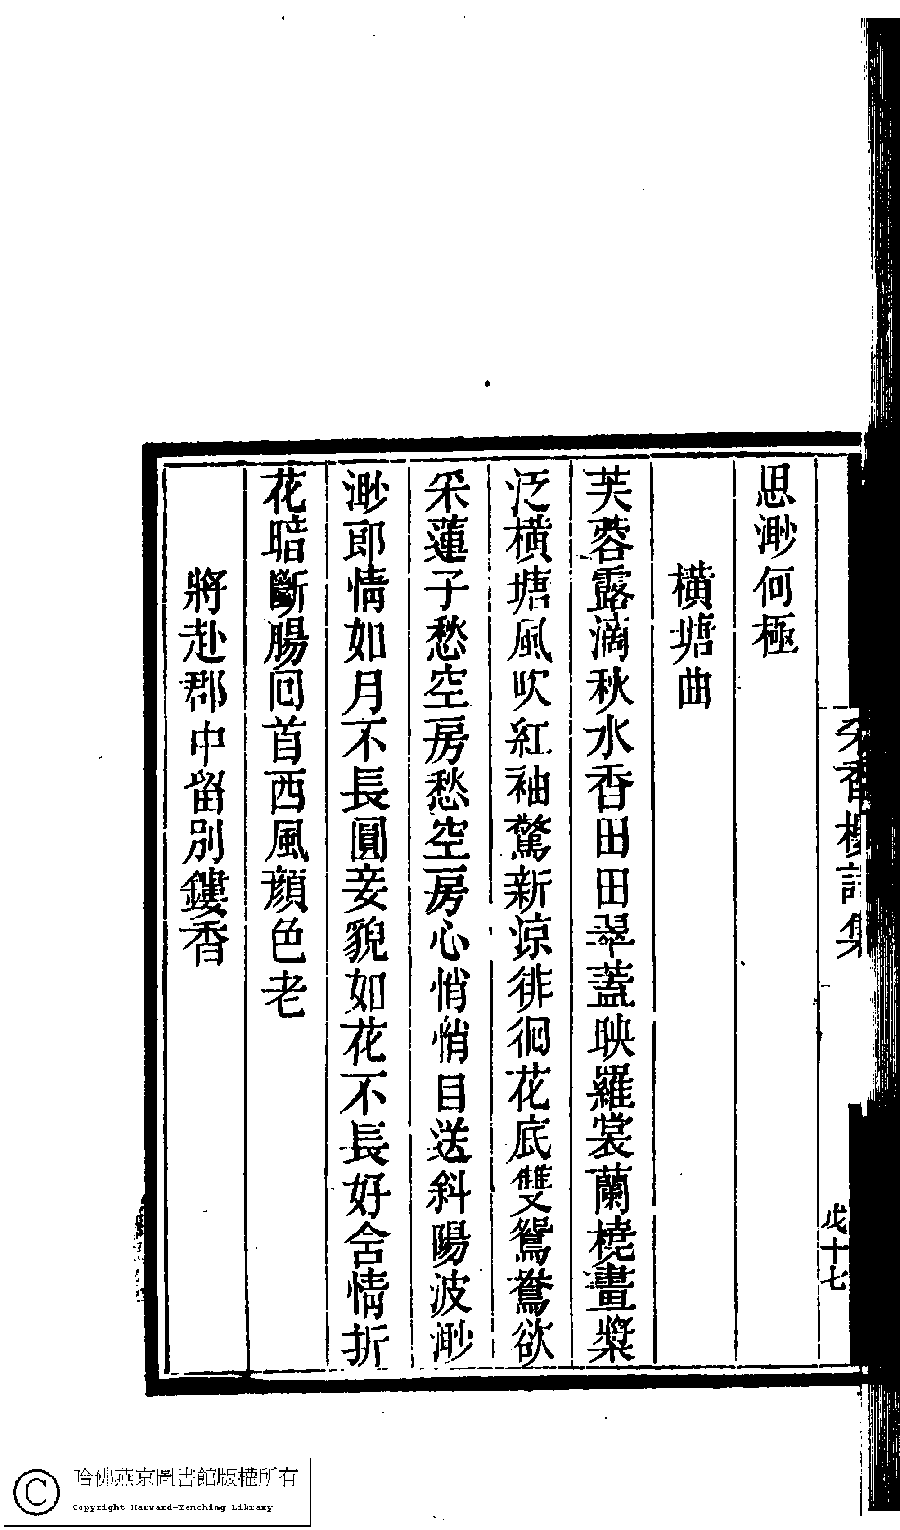 思渺何極
橫塘曲
芙蓉露滴秋水香田田翠蓋映羅裳蘭橈畫槳
泛橫塘風吹紅袖驚新涼徘徊花底雙鴛鴦欲
采蓮子愁空房愁空房心悄悄目送斜陽波渺
渺郎情如月不長圓妾貌如花不長好含情折
花暗斷腸回首西風顏色老
將赴郡中留別鏤香
香樓詩集
戊十七
哈佛燕京圖書館版權所有
Copyright Harvard-Yenching Library